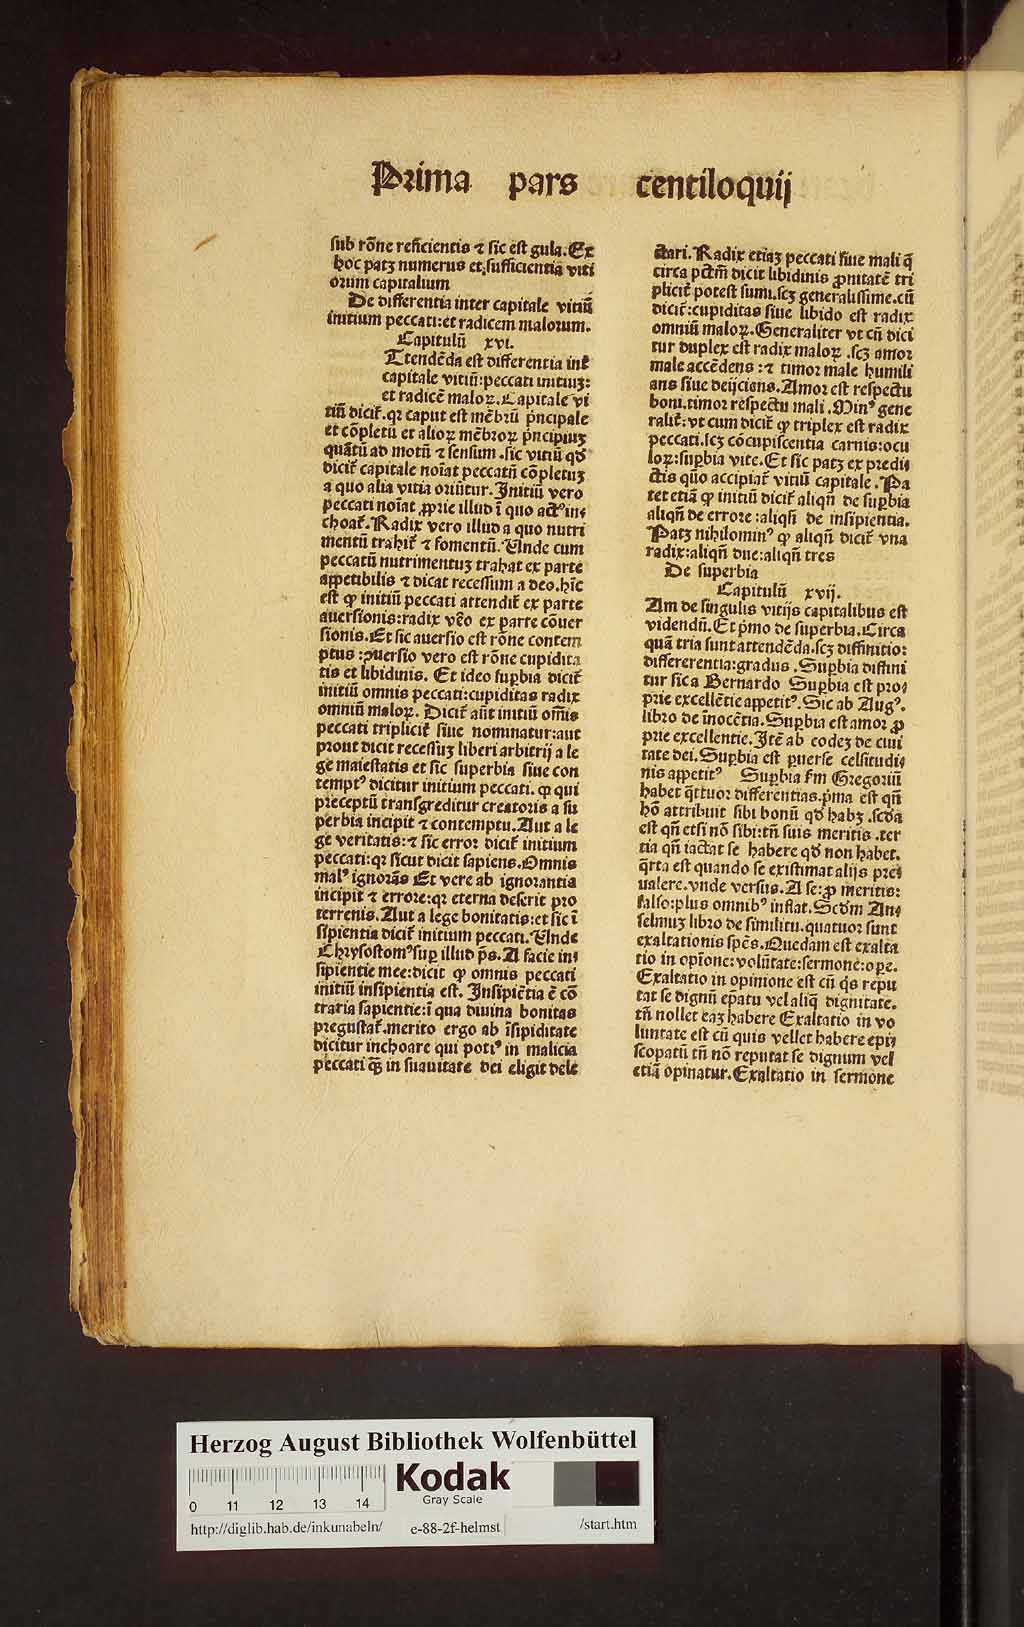 Prima pars centiloquij
sub rōne reficientis ⁊ sic est gula. Ex
hoc patꝫ numerus et sufficientia viti
orum capitalium
De differentia inter capitale vitiū
initium peccati: et radicem malorum.
Capitulū xvi.
Ttendēda est differentia int̄
capitale vitiū: peccati initiuꝫ:
et radicē maloꝝ. Capitale vi
tiū dicit᷑. qꝛ caput est mēbrū p̄ncipale
et cōpletū et alioꝝ mēbroꝝ p̄ncipiuꝫ
quātū ad motū ⁊ sensum. sic vitiū qd̄
dicit᷑ capitale noīat peccatū cōpletuꝫ
a quo alia vitia oriūtur. Initiū vero
peccati noīat ꝓprie illud ī quo actꝰ in⸗
choat᷑. Radix vero illud a quo nutri
mentū trahit᷑ ⁊ fomentū. Unde cum
peccatū nutrimentuꝫ trahat ex parte
appetibilis ⁊ dicat recessum a deo. hīc
est ꝙ initiū peccati attendit᷑ ex parte
auersionis: radix v̄o ex parte cōuer
sionis. Et sic auersio est rōne contem
ptus: ꝯuersio vero est rōne cupidita
tis et libidinis. Et ideo suꝑbia dicit᷑
initiū omnis peccati: cupiditas radix
omniū maloꝝ. Dicit᷑ aūt initiū om̄is
peccati triplicit᷑ siue nominatur: aut
prout dicit recessuꝫ liberi arbitrij a le
ge maiestatis et sic superbia siue con
temptꝰ dicitur initium peccati. ꝙ qui
preceptū transgreditur creatoris a su
perbia incipit ⁊ contemptu. Aut a le
ge veritatis: ⁊ sic error dicit᷑ initium
peccati: qꝛ sicut dicit sapiens. Omnis
malꝰ ignorās Et vere ab ignorantia
incipit ⁊ errore: qꝛ eterna deserit pro
terrenis. Aut a lege bonitatis: et sic ī
sipientia dicit᷑ initium peccati. Unde
Chrysostomꝰ suꝑ illud p̄s. A facie in⸗
sipientie mee: dicit ꝙ omnis peccati
initiū insipientia est. Insipiētia ē cō
traria sapientie: ī qua diuina bonitas
pregustat᷑. merito ergo ab īsipiditate
dicitur inchoare qui potiꝰ in malicia
peccati ꝙ̄ in suauitate dei eligit dele
ctari. Radix etiaꝫ peccati siue mali q̄
circa pctm̄ dicit libidinis ꝓnitatē tri
plicit᷑ potest sumi. scꝫ generalissime. cū
dicit᷑: cupiditas siue libido est radix
omniū maloꝝ. Generaliter vt cū dici
tur duplex est radix maloꝝ. scꝫ amor
male accēdens: ⁊ timor male humili
ans siue deijciens. Amor est respectu
boni. timor respectu mali. Minꝰ gene
ralit᷑: vt cum dicit᷑ ꝙ triplex est radix
peccati. scꝫ cōcupiscentia carnis: ocu
loꝝ: suꝑbia vite. Et sic patꝫ ex predi⸗
ctis quō accipiat᷑ vitiū capitale. Pa
tet etiā ꝙ initiū dicit᷑ aliqn̄ de suꝑbia
aliqn̄ de errore: aliqn̄ de insipientia.
Patꝫ nihilominꝰ ꝙ aliqn̄ dicit᷑ vna
radix: aliqn̄ due: aliqn̄ tres
De superbia
Capitulū xvij.
Am de singulis vitijs capitalibus est
videndū. Et p̄mo de superbia. Circa
quā tria sunt attendēda. scꝫ diffinitio:
differerentia: gradus. Suꝑbia diffini
tur sic a Bernardo Suꝑbia est pro⸗
prie excellētie appetitꝰ. Sic ab Augꝰ.
libro de īnocētia. Suꝑbia est amor ꝓ
prie excellentie. Itē ab eodeꝫ de ciui
tate dei. Suꝑbia est ꝑuerse celsitudi⸗
nis appetitꝰ Suꝑbia s̄m Gregoriū
habet q̄ttuor differentias. p̄ma est qn̄
hō attribuit sibi bonū qd̄ habꝫ. scd̄a
est qn̄ etsi nō sibi: tn̄ suis meritis. ter
tia qn̄ iactat se habere qd̄ non habet.
q̄rta est quando se existimat alijs pre⸗
ualere. vnde versus. A se: ꝓ meritis:
falso: plus omnibꝰ inflat. Scd̄m An⸗
selmuꝫ libro de similitu. quatuor sunt
exaltationis sp̄es. Quedam est exalta
tio in opīone: volūtate: sermone: oꝑe.
Exaltatio in opinione est cū q̄s repu
tat se dignū ep̄atu vel aliq̄ dignitate.
tn̄ nollet eaꝫ habere Exaltatio in vo
luntate est cū quis vellet habere epi⸗
scopatū tn̄ nō reputat se dignum vel
etiā opinatur. Exaltatio in sermone
Herzog August Bibliothek Wolfenbüttel
0 11 12 13 14
Kodak
Gray Scale
http://diglib.hab.de/inkunabeln/ e-88-2f-helmst /start.htm